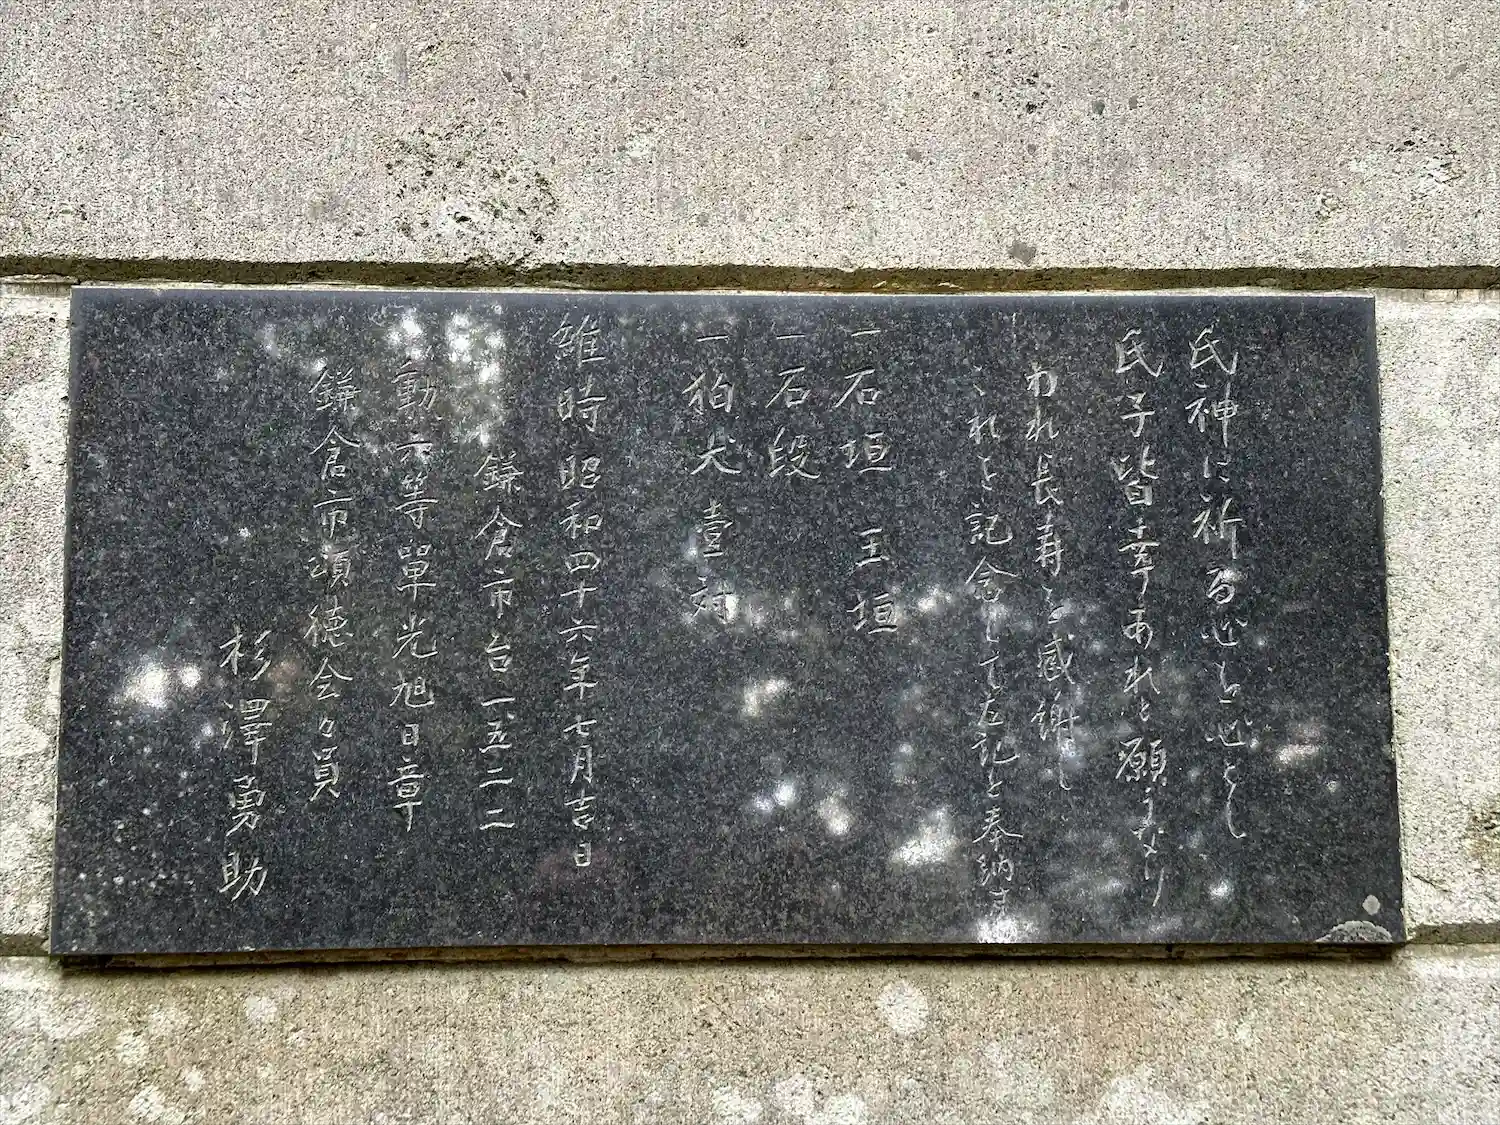 氏神に祈る心を心とし
氏子皆幸あれと願うなり
われ長寿を感謝し
これを記念して左記を奉納す
一石垣 玉垣
一石段
一狛犬壹対
維時昭和四十六年七月吉日
鎌倉市台一五二二
勲六等單光旭日章
鎌倉市頌徳会々員
杉澤勇助